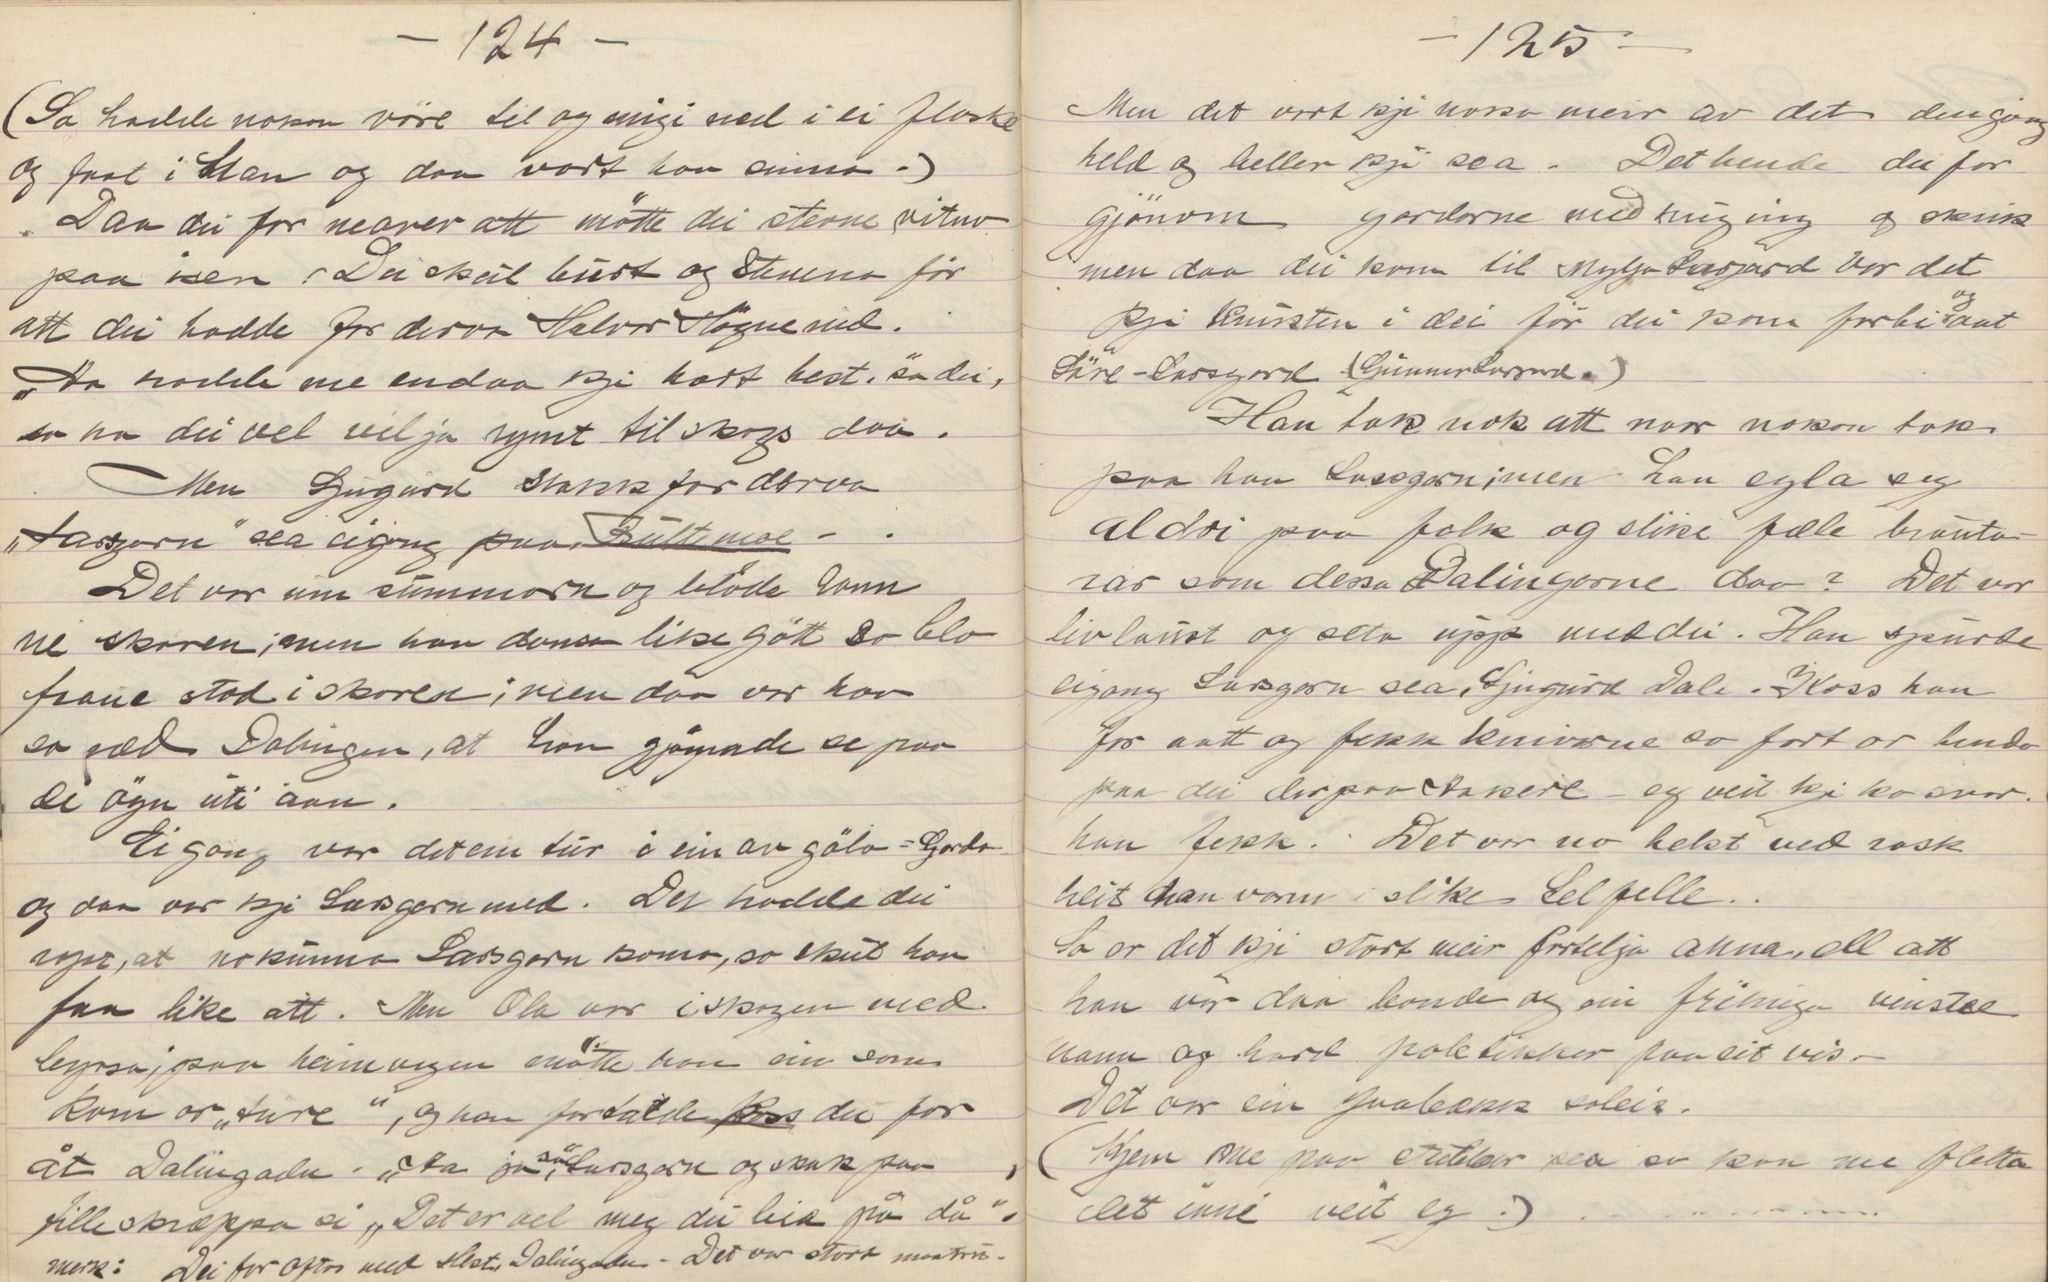 - 124 -
(So hadde nokon vöre til og migi ned i ei flaske
og faat i Han og daa vart han sinna.)
Daa dei for nearer att mötte dei sterne vitne
paa isen. Dei skul burt og stemna för
att dei hadde for derva Halvor Högne ned.
"Aa hadde me endaa kji hatt hest. sa dei,
so ha dei vel vilja rymt til skogs daa.
Men Gjugurd Stakk for derva
"Larsgarn" sea eigong paa Bultemoe -
Det var um summarn og blöde rann
ne skoren; men han dansa like gött so blo
fraue stod i skoren; men daa var han
so ræd Dalingen, at han gjömde se paa
ei öyn uti aan.
Ei gong var det ein tur å ein av göla = Gorda
og daa var kji Larsgarn med. Det hadde dei
ropa, at no kunna Larsgarn koma, so skul han
faa like ått. Men Ola var i skogen med
byrsa; paa heimvegen mötte han ein som
kom or "ture", og han fortalde koss dei for
åt Dalingadn. "Aa ja "sa" Larsgarn og skok paa
filleskræppa si, "Det er vel meg dei bia på då".
merk: Dei for ofta med Hest, Dalingadn - Det var stort
- 125 -
Men det vart kji noko meir av det dengong
held og heller kji sea. Det hende dei for
gjönom gardarne med huging og skrik
men daa dei kom til Larsgard var det
kji knursten i dei för dei kom forbi og aat
Söre-Larsgard (Gunnar Larsgard.)
Han tok nok att naar nokon tok
paa han Larsgarn; men han egla seg
aldri paa folk og slike fæle brauta-
rar som dessa Dalingarne daa? Det var
livlaust og seta upp med dei. Han spurde
eigong Larsgarn sea, Gjugurd Dale. "Koss han
for aatt og fekk knivarne so fort or henda
paa dei derpaa Aakere - eg veit kji ka svar.
han fekk. Det var no helst ved rask
heit han vann i slike telfelle..
So er det kji stort meir fortelja anna, ell att
han vör daa bonde og ein frihuga venstre
mann og hard poletikker paa sit vis.-
Det var ein kvalekk soleis.
(Kjem me paa stubbar sea so kan me fletta
det inni veit eg.) . . . . . . . .